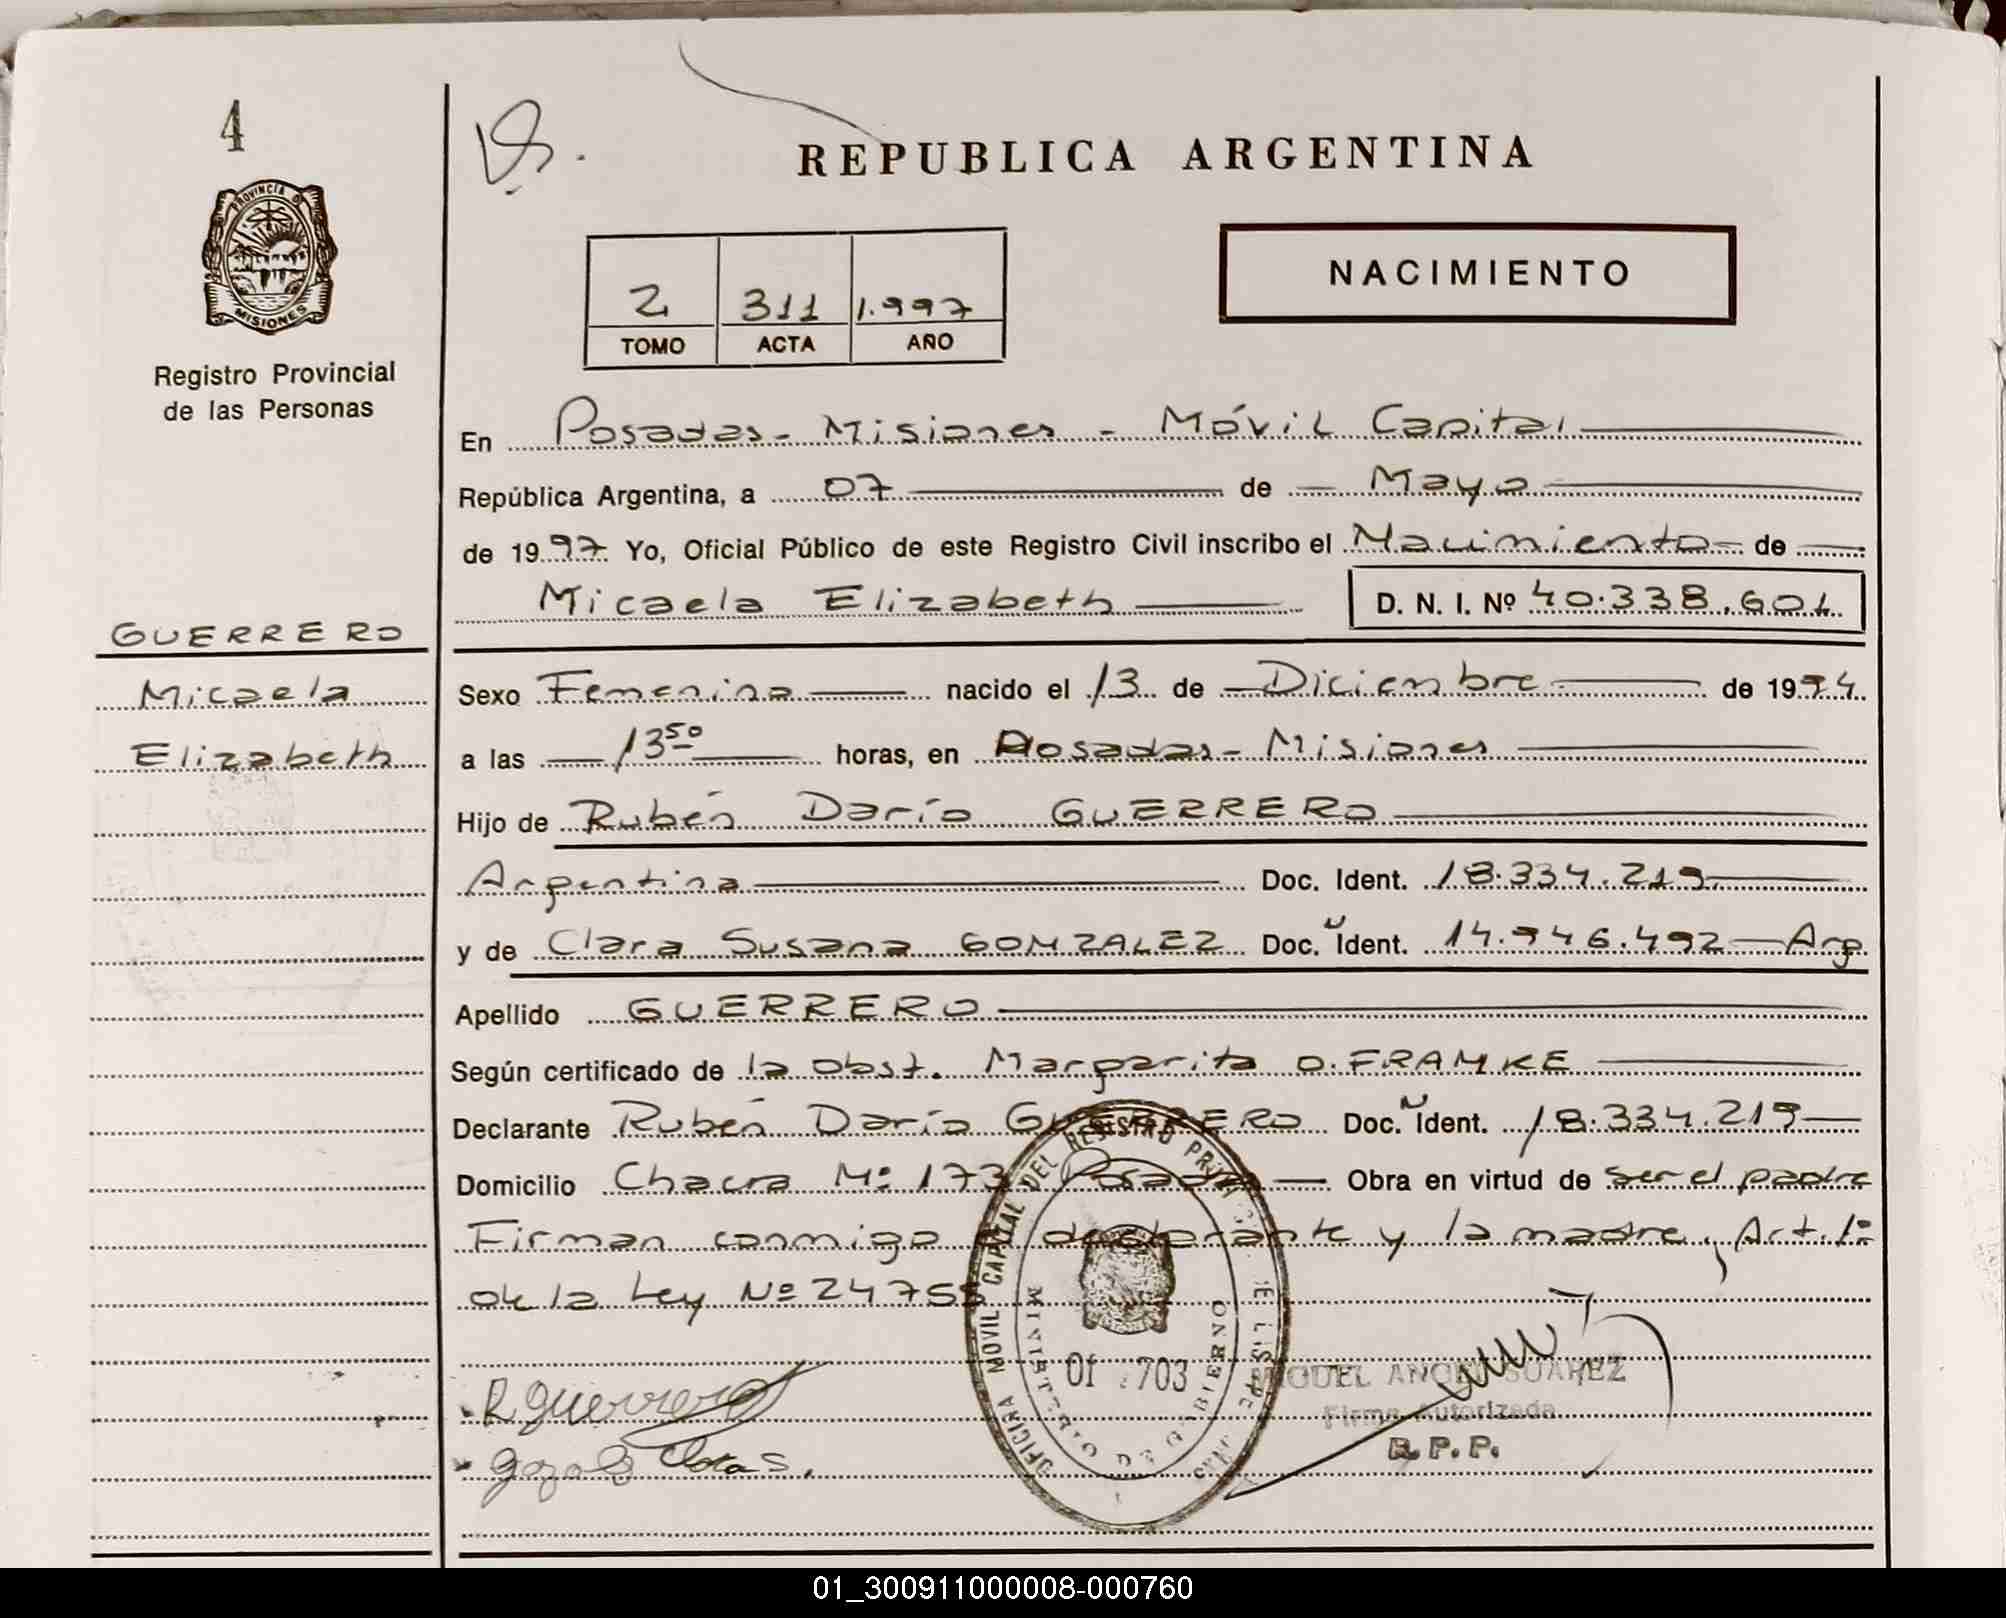 4
REPUBLICA ARGENTINA
PROVINCIA D MISIONES
NACIMIENTO
2 311 1.997
TOMO ACTA AÑO
Registro Provincial
de las Personas
En Posadas - Misiones - Móvil Capital
República Argentina, a 07 de Mayo
de 1997 Yo, Oficial Público de este Registro Civil inscribo el Nacimiento de
Micaela Elizabeth D. N. I. Nº 40.338.601
GUERRERO
Micaela
Elizabeth
Sexo Femenina nacido el 13 de Diciembre de 1994
a las 13 50 horas, en Posadas - Misiones
Hijo de Rubén Darío GUERRERO
Argentina Doc. Ident. 18.334.219
y de Clara Susana GONZALEZ Doc. Ident. 14.946.492 - Arg
Apellido GUERRERO
Según certificado de la obst. Margarita O. FRANKE
Declarante Rubén Darío GUERRERO Doc. Ident. 18.334.219
Domicilio Chacra Nº 173 Posadas Obra en virtud de ser el padre
Firman conmigo el declarante y la madre, Art. 1º
de la Ley Nº 24755
OFICINA MOVIL CAPITAL DEL REGISTRO PROVINCIAL DE LAS PERSONAS
MINISTERIO DE GOBIERNO
Of 703
R Guerrero
MIGUEL ANGEL SUAREZ
Firma Autorizada
R. P. P.
01_300911000008-000760